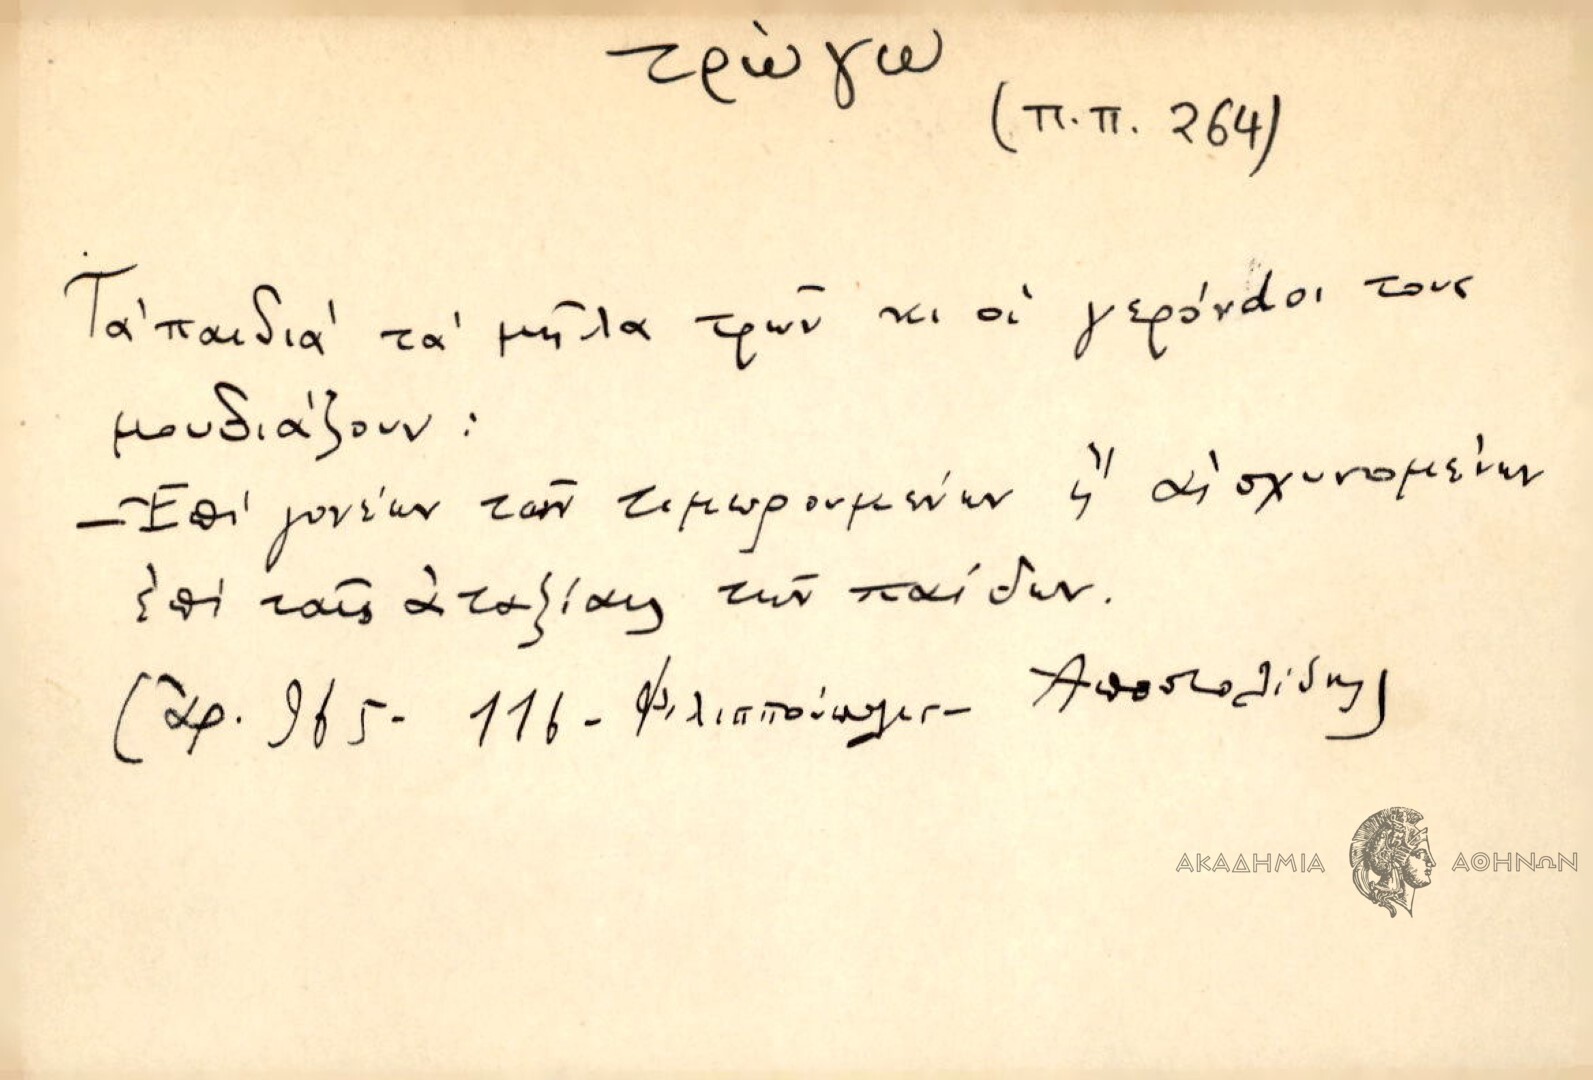 τρώγω
(π.π. 264)
Τὰ παιδιὰ τὰ μῆλα τρῶν κι οἱ γερόνdοι τους
μουδιάζουν :
– Ἐπὶ γονέων τῶν τιμωρουμένων ἢ αἰσχυνομένων
ἐπὶ ταῖς ἀταξίαις τῶν παίδων.
(ἀρ. 965 - 116 - Φιλιππούπολις - Ἀποστολίδης)
ΑΚΑΔΗΜΙΑ ΑΘΗΝΩΝ